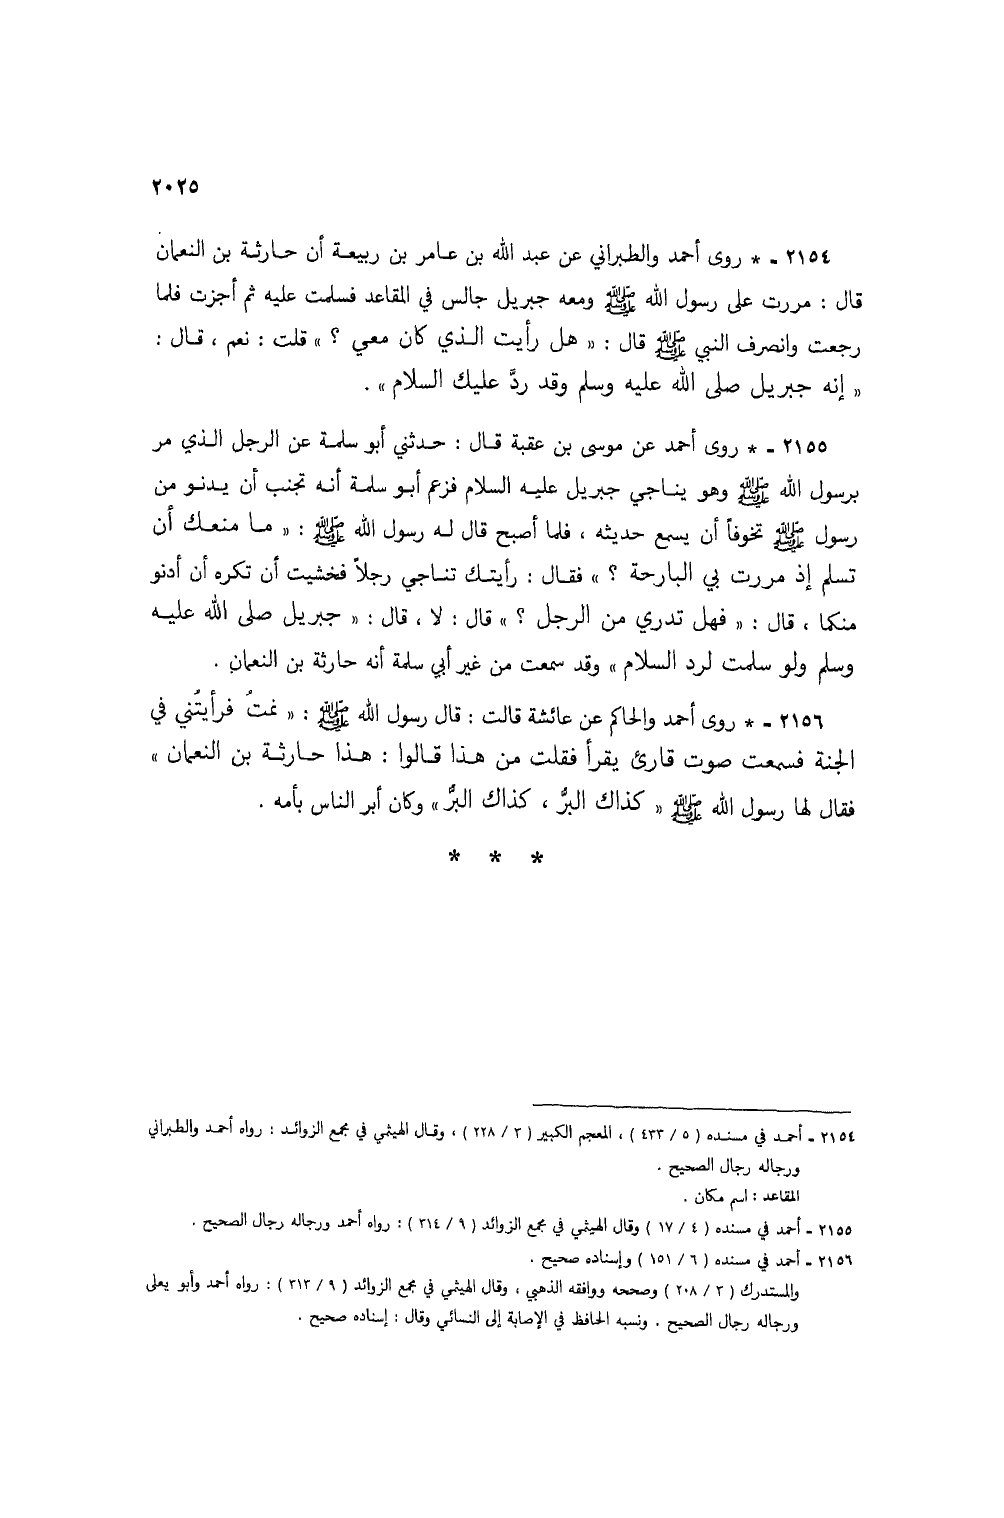 ٢٠٢٥
٢١٥٤ - * روى أحمد والطبراني عن عبد الله بن عامر بن ربيعة أن حارثة بن النعمان
قال : مررت على رسول الله ﷺ ومعه جبريل جالس في المقاعد فسلمت عليه ثم أجزت فلما
رجعت وانصرف النبي ﷺ قال : « هل رأيت الذي كان معي ؟ » قلت : نعم ، قال :
« إنه جبريل صلى الله عليه وسلم وقد ردَّ عليك السلام » .
٢١٥٥ - * روى أحمد عن موسى بن عقبة قال : حدثني أبو سلمة عن الرجل الذي مر
برسول الله ﷺ وهو يناجي جبريل عليه السلام فزعم أبو سلمة أنه تجنب أن يدنو من
رسول ﷺ تخوفاً أن يسمع حديثه ، فلما أصبح قال له رسول الله ﷺ : « ما منعك أن
تسلم إذ مررت بي البارحة ؟ » فقال : رأيتك تناجي رجلاً فخشيت أن تكره أن أدنو
منكما ، قال : « فهل تدري من الرجل ؟ » قال : لا ، قال : « جبريل صلى الله عليه
وسلم ولو سلمت لرد السلام » وقد سمعت من غير أبي سلمة أنه حارثة بن النعمان .
٢١٥٦ - * روى أحمد والحاكم عن عائشة قالت : قال رسول الله ﷺ : « نمتُ فرأيتُني في
الجنة فسمعت صوت قارئ يقرأ فقلت من هذا قالوا : هذا حارثة بن النعمان »
فقال لها رسول الله ﷺ « كذاك البرُّ ، كذاك البرُّ » وكان أبر الناس بأمه .
* * *
٢١٥٤ - أحمد في مسنده ( ٥ / ٤٣٣ ) ، المعجم الكبير ( ٣ / ٢٢٨ ) ، وقال الهيثمي في مجمع الزوائد : رواه أحمد والطبراني
ورجاله رجال الصحيح .
المقاعد : اسم مكان .
٢١٥٥ - أحمد في مسنده ( ٤ / ١٧ ) وقال الهيثمي في مجمع الزوائد ( ٩ / ٣١٤ ) : رواه أحمد ورجاله رجال الصحيح .
٢١٥٦ - أحمد في مسنده ( ٦ / ١٥١ ) وإسناده صحيح .
والمستدرك ( ٣ / ٢٠٨ ) وصححه ووافقه الذهبي ، وقال الهيثمي في مجمع الزوائد ( ٩ / ٣١٣ ) : رواه أحمد وأبو يعلى
ورجاله رجال الصحيح . ونسبه الحافظ في الإصابة إلى النسائي وقال : إسناده صحيح .